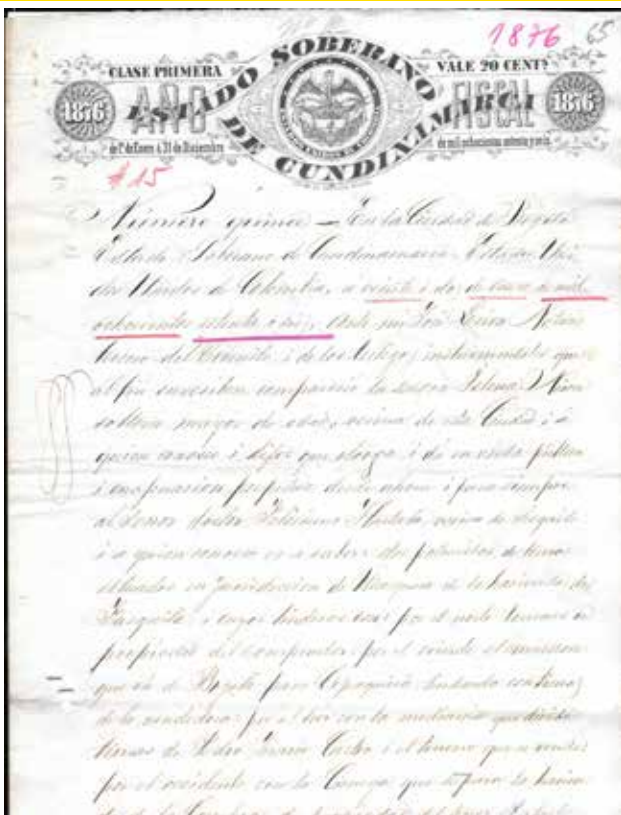 1876 65
CLASE PRIMERA ESTADO SOBERANO VALE 20 CENTS
1876 AÑO FISCAL 1876
de 1º de Enero á 31 de Diciembre DE CUNDINAMARCA de mil ochocientos setenta y seis
ESTADOS UNIDOS DE COLOMBIA
# 15
Número quince — En la Ciudad de Bogotá
Estado Soberano de Cundinamarca, Estados Uni
dos Unidos de Colombia, a veinte i dos de enero de mil
ochocientos setenta i seis, ante mi José Notario
del Circuito i de los testigos instrumentales que
al fin suscriben, compareció la señora Helena
soltera mayor de edad, vecina de esta Ciudad i a
quien conozco i dijo: que otorga i da en venta pública
i enajenacion perpetua desde ahora i para siempre
al Señor doctor Hurtado, vecino de
i a quien conozco es a saber: dos potreritos de tierra
situados en jurisdiccion de de la hacienda de
i cuyos linderos son: por el norte terrenos de
propiedad del comprador; por el oriente el camellon
que va de Bogotá para Cipaquirá lindando con tierras
de la vendedora; por el sur con la que divide
tierras de Pedro Castro i el terreno que se vende
por el occidente con la Cienega que separa la hacien
da de la de propiedad del Señor